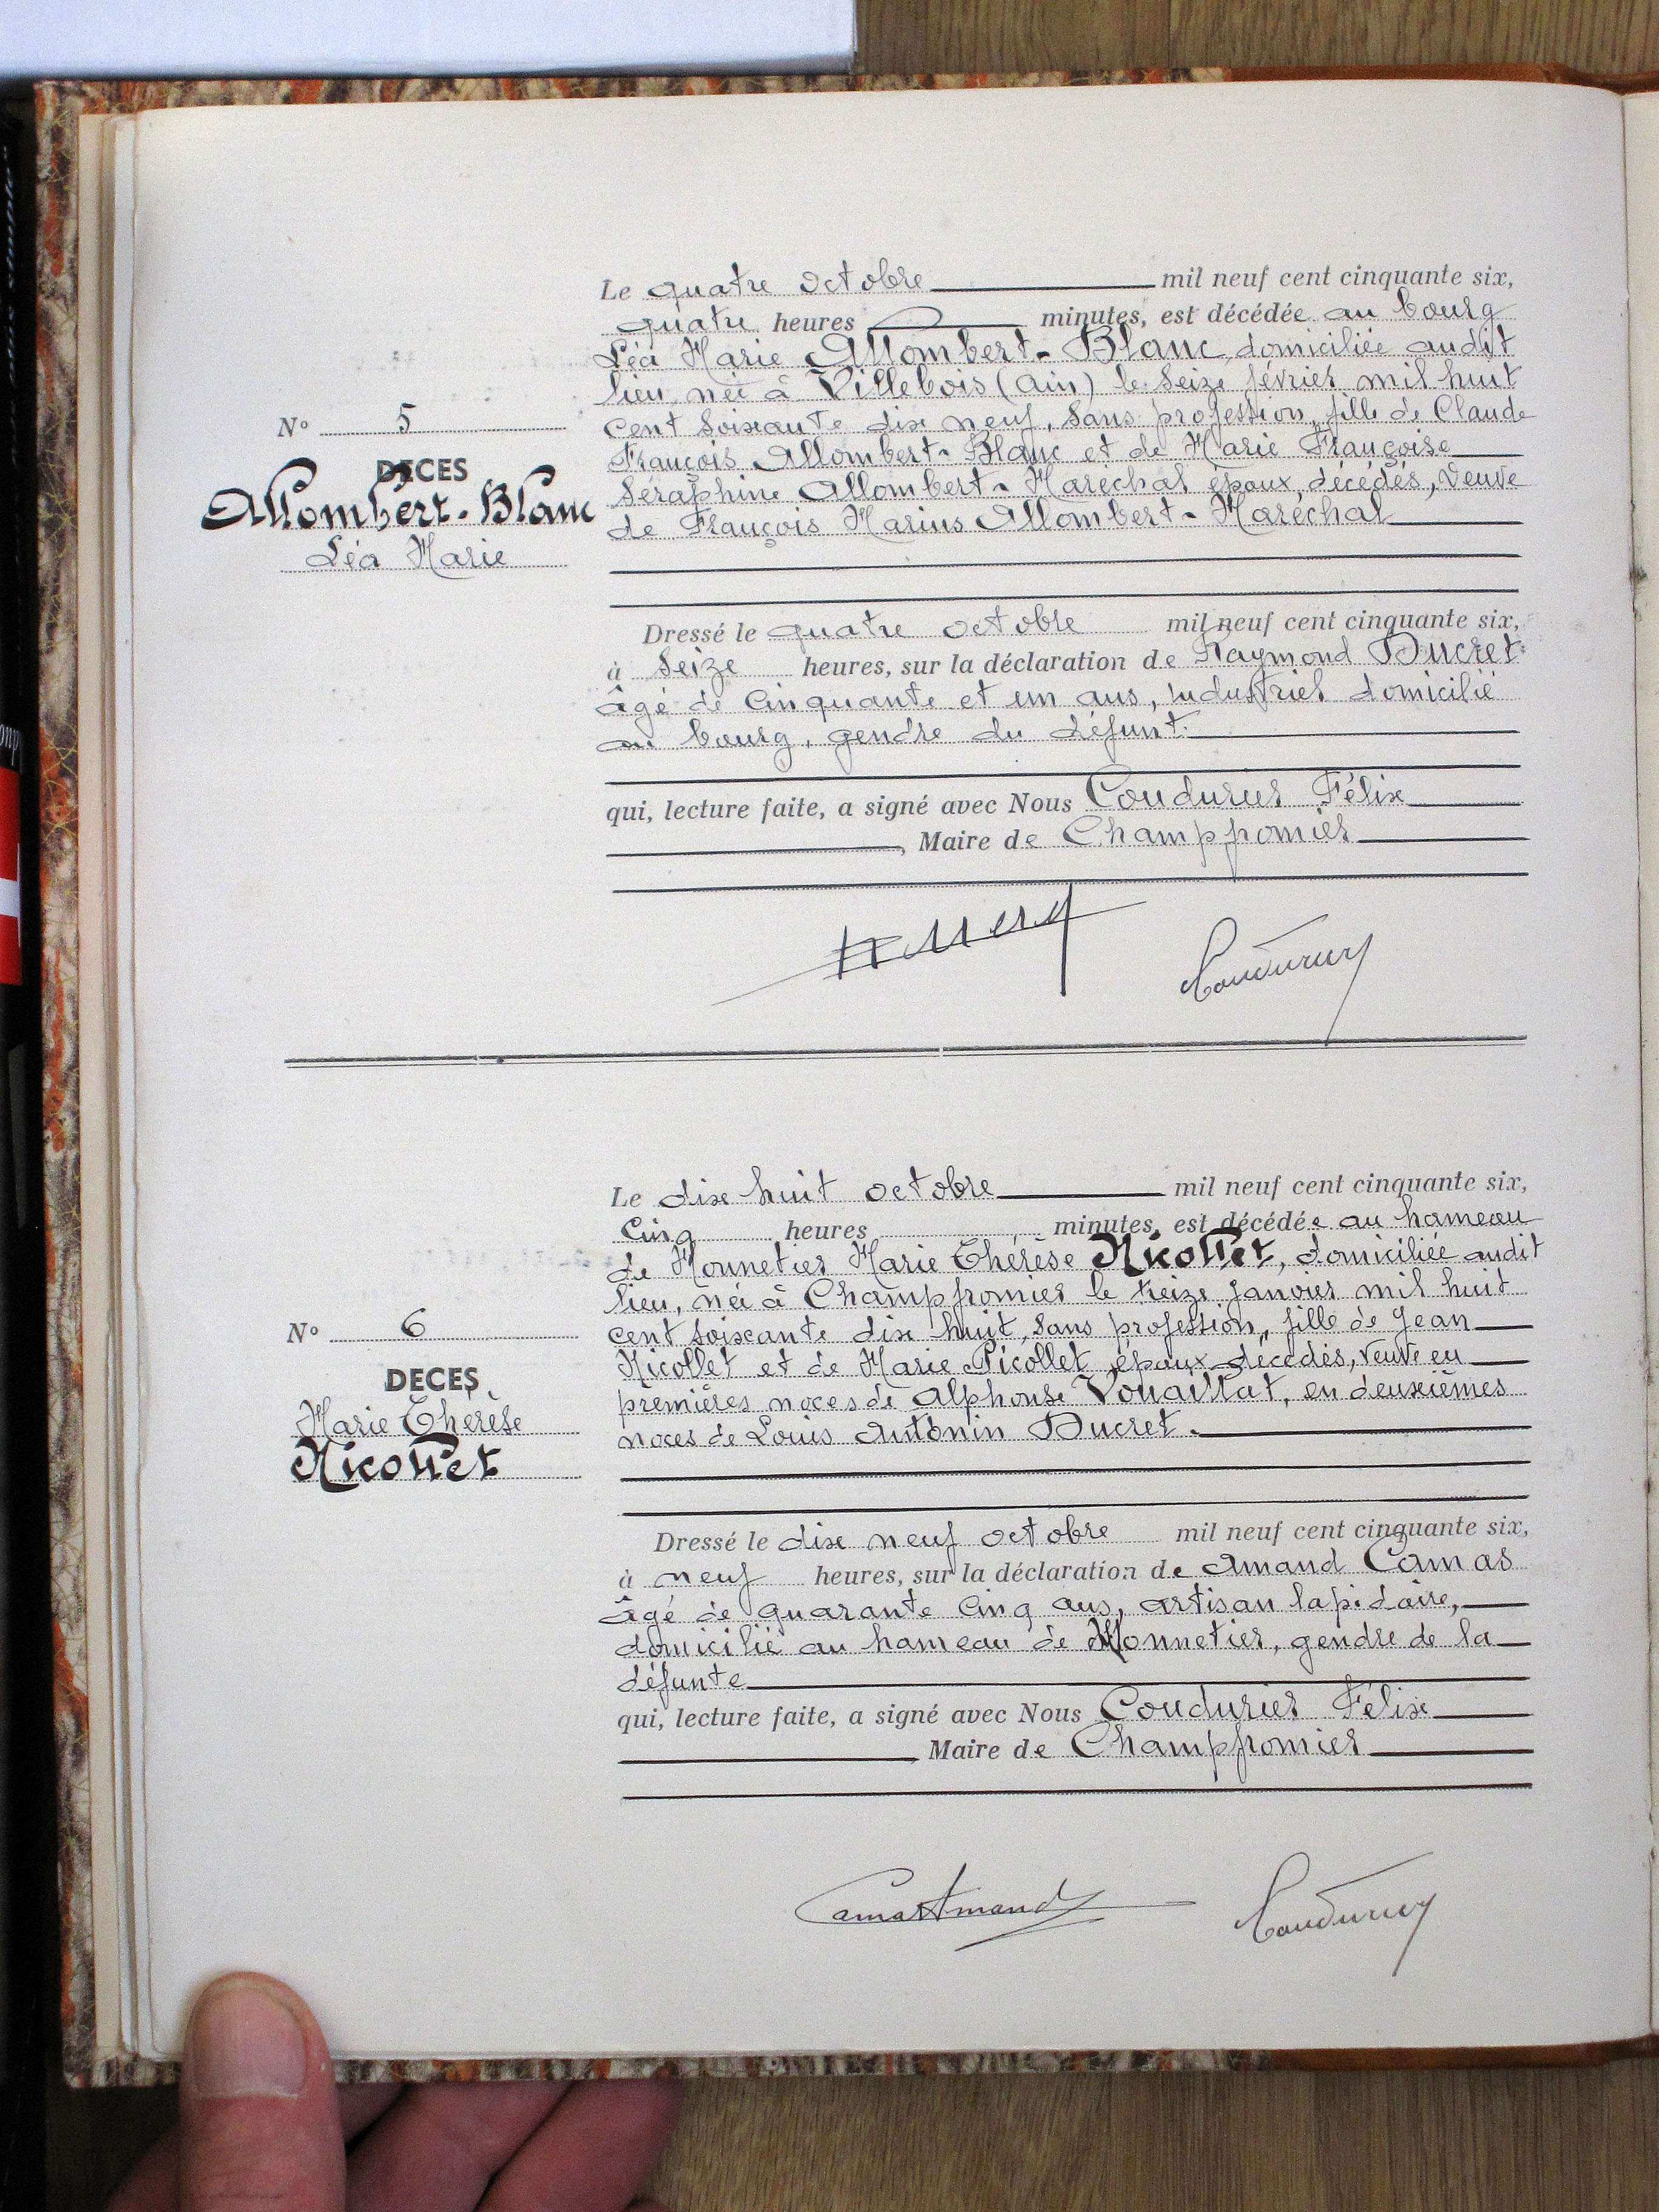 Le quatre octobre mil neuf cent cinquante six,
quatre heures minutes, est décédée au bourg
Léa Marie Allombert-Blanc, domiciliée audit
lieu, née à Villebois (Ain) le seize février mil huit
cent soixante dix neuf, sans profession, fille de Claude
François Allombert-Blanc et de Marie Françoise
Séraphine Allombert-Maréchal époux décédés, veuve
de François Marius Allombert-Maréchal
N° 5
DECES
Allombert-Blanc
Léa Marie
Dressé le quatre octobre mil neuf cent cinquante six,
à seize heures, sur la déclaration de Raymond Ducret
âgé de cinquante et un ans, industriel domicilié
au bourg, gendre du défunt.
qui, lecture faite, a signé avec Nous Coudurier Félix
, Maire de Champfromier
Coudurier
Le dix huit octobre mil neuf cent cinquante six,
cinq heures minutes, est décédée au hameau
de Monnetier Marie Thérèse Nicollet, domiciliée audit
lieu, née à Champfromier le treize janvier mil huit
cent soixante dix huit, sans profession, fille de Jean
Nicollet et de Marie Picollet époux décédés, veuve en
premières noces de Alphonse Vouaillat, en deuxièmes
noces de Louis Antonin Ducret.
N° 6
DECES
Marie Thérèse
Nicollet
Dressé le dix neuf octobre mil neuf cent cinquante six,
à neuf heures, sur la déclaration de Amand Camas
âgé de quarante cinq ans, artisan lapidaire,
domicilié au hameau de Monnetier, gendre de la
défunte
qui, lecture faite, a signé avec Nous Coudurier Félix
Maire de Champfromier
Camas Amand Coudurier